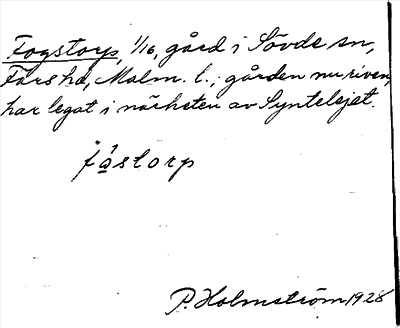 Fogstorp, 1/16, gård i Sövde sn,
Färs hd, Malm. l.; gården nu riven,
har legat i närheten av Syntelsjet.
fåstorp
P. Holmström 1928